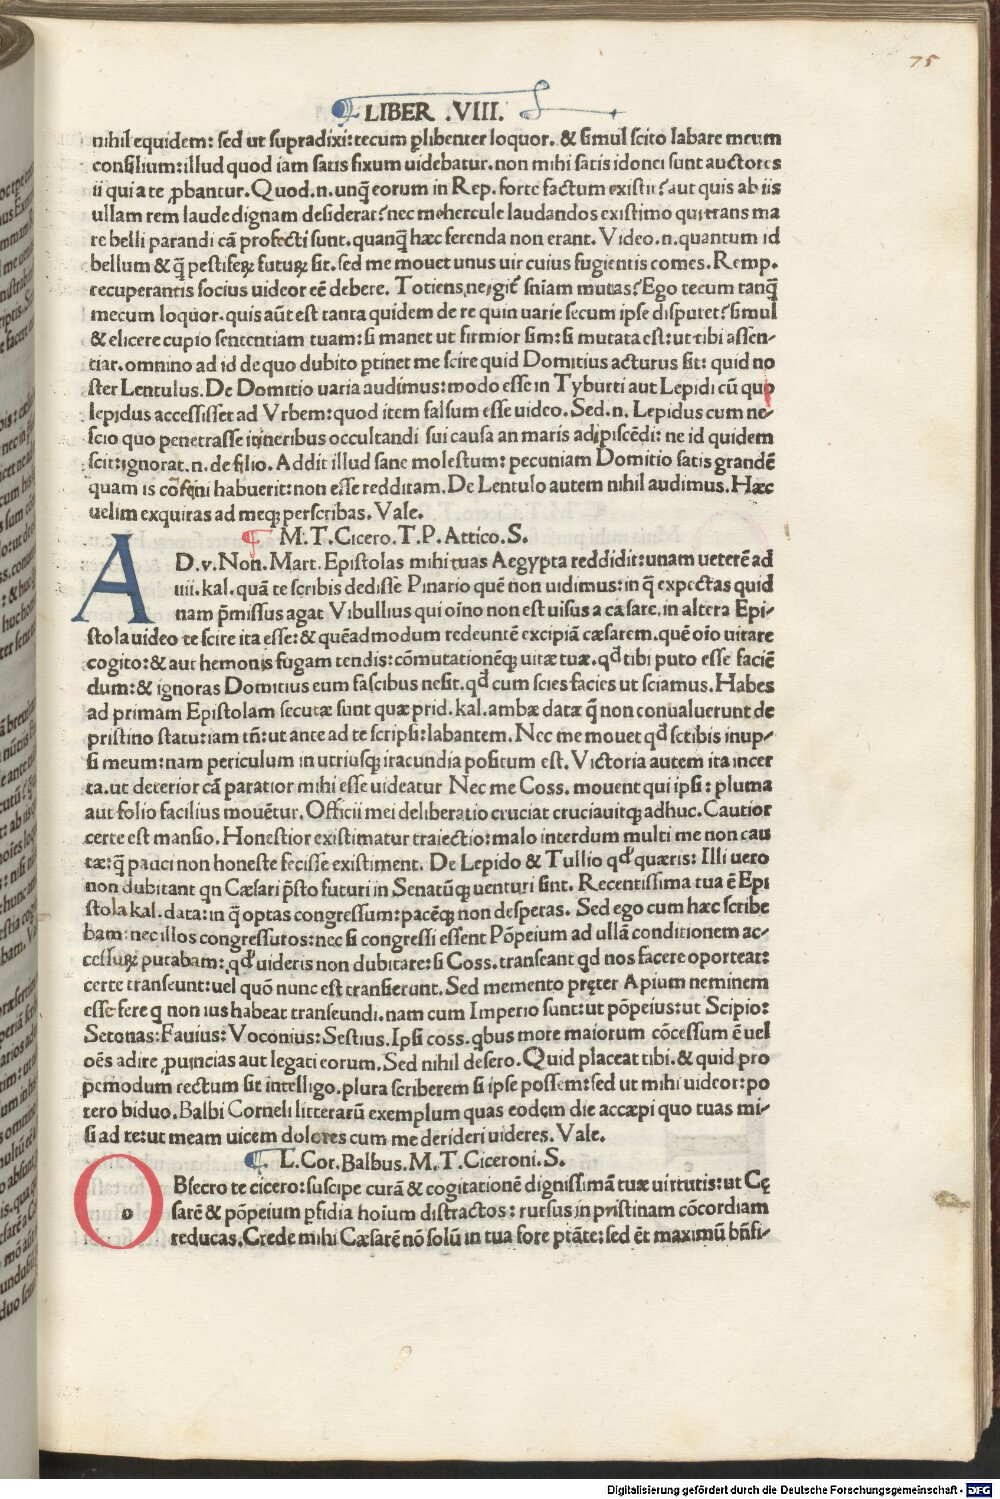 75
LIBER .VIII.
nihil equidem: sed ut supradixi: tecum ꝑlibenter loquor. & simul scito labare meum
consilium: illud quod iam satis fixum uidebatur. non mihi satis idonei sunt auctores
ii qui a te ꝓbantur. Quod .n. unq̃ eorum in Rep. forte factum existit? aut quis ab iis
ullam rem laude dignam desiderat? nec mehercule laudandos existimo qui trans ma
re belli parandi cā profecti sunt. quanq̃ hæc ferenda non erant. Video .n. quantum id
bellum & q̃ pestiferꝝ futurꝝ sit. sed me mouet unus uir cuius fugientis comes. Remp.
recuperantis socius uideor eē debere. Totiens ne igiť sniam mutas? Ego tecum tanq̃
mecum loquor. quis aūt est tanta quidem de re quin uarie secum ipse disputet? simul
& elicere cupio sententiam tuam: si manet ut firmior sim: si mutata est: ut tibi assen-
tiar. omnino ad id de quo dubito ꝑtinet me scire quid Domitius acturus sit: quid no
ster Lentulus. De Domitio uaria audimus: modo esse in Tyburti aut Lepidi cū quo
lepidus accessisset ad Vrbem: quod item falsum esse uideo. Sed .n. Lepidus cum ne-
scio quo penetrasse itineribus occultandi sui causa an maris adipiscēdi: ne id quidem
scit: ignorat .n. de filio. Addit illud sane molestum: pecuniam Domitio satis grandē
quam is cōfini habuerit: non esse redditam. De Lentulo autem nihil audimus. Hæc
uelim exquiras ad meqꝫ perscribas. Vale.
M. T. Cicero. T. P. Attico. S.
AD. v. Non. Mart. Epistolas mihi tuas Aegypta reddidit: unam ueterē ad
iiii. kal. quā te scribis dedisse Pinario quē non uidimus: in q̃ expectas quid
nam p̄missus agat Vibullius qui oīno non est uisus a cæsare. in altera Epi-
stola uideo te scire ita esse: & quēadmodum redeuntē excipiā cæsarem. quē oīo uitare
cogito: & aut hemonis fugam tendis: cōmutationēqꝫ uitæ tuæ. qd tibi puto esse faciē
dum: & ignoras Domitius eum fascibus nesit. qd cum scies facies ut sciamus. Habes
ad primam Epistolam secutæ sunt quæ prid. kal. ambæ datæ q̃ non conualuerunt de
pristino statu: iam tñ: ut ante ad te scripsi: labantem. Nec me mouet qd scribis inup-
si meum: nam periculum in utriusqꝫ iracundia positum est. Victoria autem ita incer
ta. ut deterior cā paratior mihi esse uideatur Nec me Coss. mouent qui ipsi: pluma
aut folio facilius mouētur. Officii mei deliberatio cruciat cruciauitqꝫ adhuc. Cautior
certe est mansio. Honestior existimatur traiectio: malo interdum multi me non cau
tæ: q̃ pauci non honeste fecisse existiment. De Lepido & Tullio qd quæris: Illi uero
non dubitant qn Cæsari p̄sto futuri in Senatūqꝫ uenturi sint. Recentissima tua ē Epi
stola kal. data: in q̃ optas congressum: pacēqꝫ non desperas. Sed ego cum hæc scribe
bam: nec illos congressuros: nec si congressi essent Pōpeium ad ullā conditionem ac-
cessurꝝ putabam: qd uideris non dubitare: si Coss. transeant qd nos facere oporteat:
certe transeunt: uel quō nunc est transierunt. Sed memento pręter Apium neminem
esse fere q̣ non ius habeat transeundi. nam cum Imperio sunt: ut pōpeius: ut Scipio:
Setonas: Fauius: Voconius: Sestius. Ipsi coss. qbus more maiorum cōcessum ē uel
oēs adire ꝓuincias aut legati eorum. Sed nihil desero. Quid placeat tibi. & quid pro
pemodum rectum sit intelligo. plura scriberem si ipse possem: sed ut mihi uideor: po
tero biduo. Balbi Corneli litterarū exemplum quas eodem die accæpi quo tuas mi-
si ad te: ut meam uicem dolores cum me derideri uideres. Vale.
L. Cor. Balbus. M. T. Ciceroni. S.
OBsecro te cicero: suscipe curā & cogitationē dignissimā tuæ uirtutis: ut Cę
sarē & pōpeium ꝑfidia hoīum distractos: rursus in pristinam cōcordiam
reducas. Crede mihi Cæsarē nō solū in tua fore ptāte: sed ēt maximū bñfi-
Digitalisierung gefördert durch die Deutsche Forschungsgemeinschaft - DFG